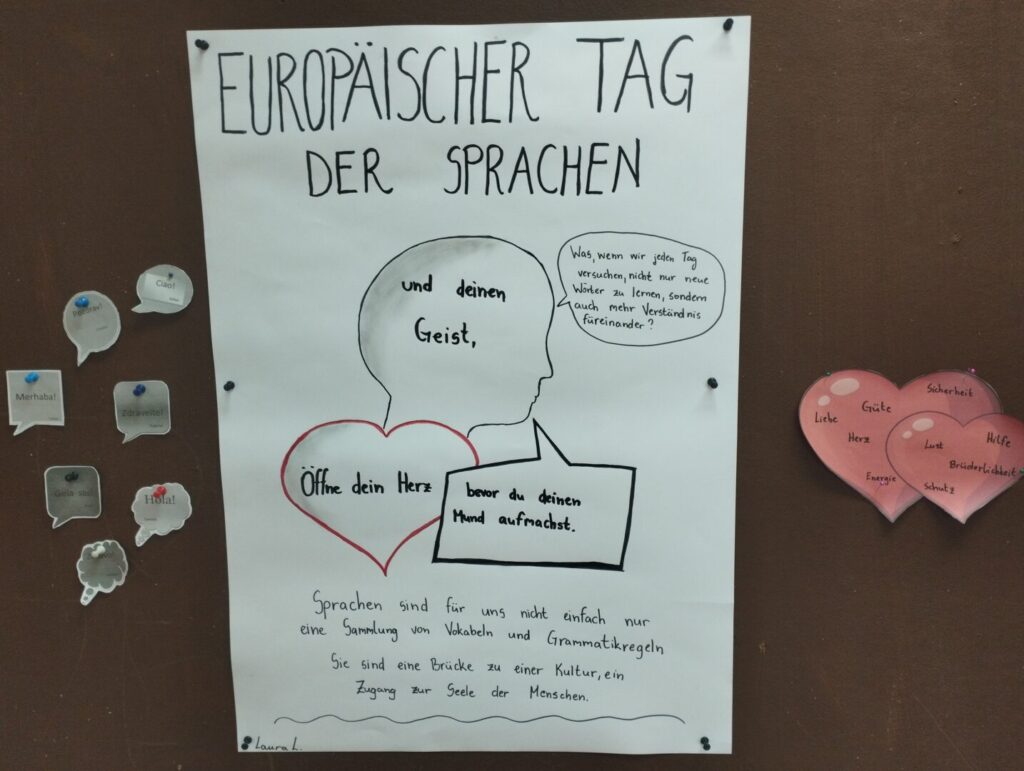 EUROPÄISCHER TAG
DER SPRACHEN
und deinen
Geist,
Was, wenn wir jeden Tag
versuchen, nicht nur neue
Wörter zu lernen, sondern
auch mehr Verständnis
füreinander?
Öffne dein Herz
bevor du deinen
Mund aufmachst.
Sprachen sind für uns nicht einfach nur
eine Sammlung von Vokabeln und Grammatikregeln
Sie sind eine Brücke zu einer Kultur, ein
Zugang zur Seele der Menschen.
Laura L.
Ciao!
Merhaba!
Zdraveite!
Hola!
Liebe
Güte
Herz
Energie
Sicherheit
Lust
Hilfe
Brüderlichkeit
Schutz